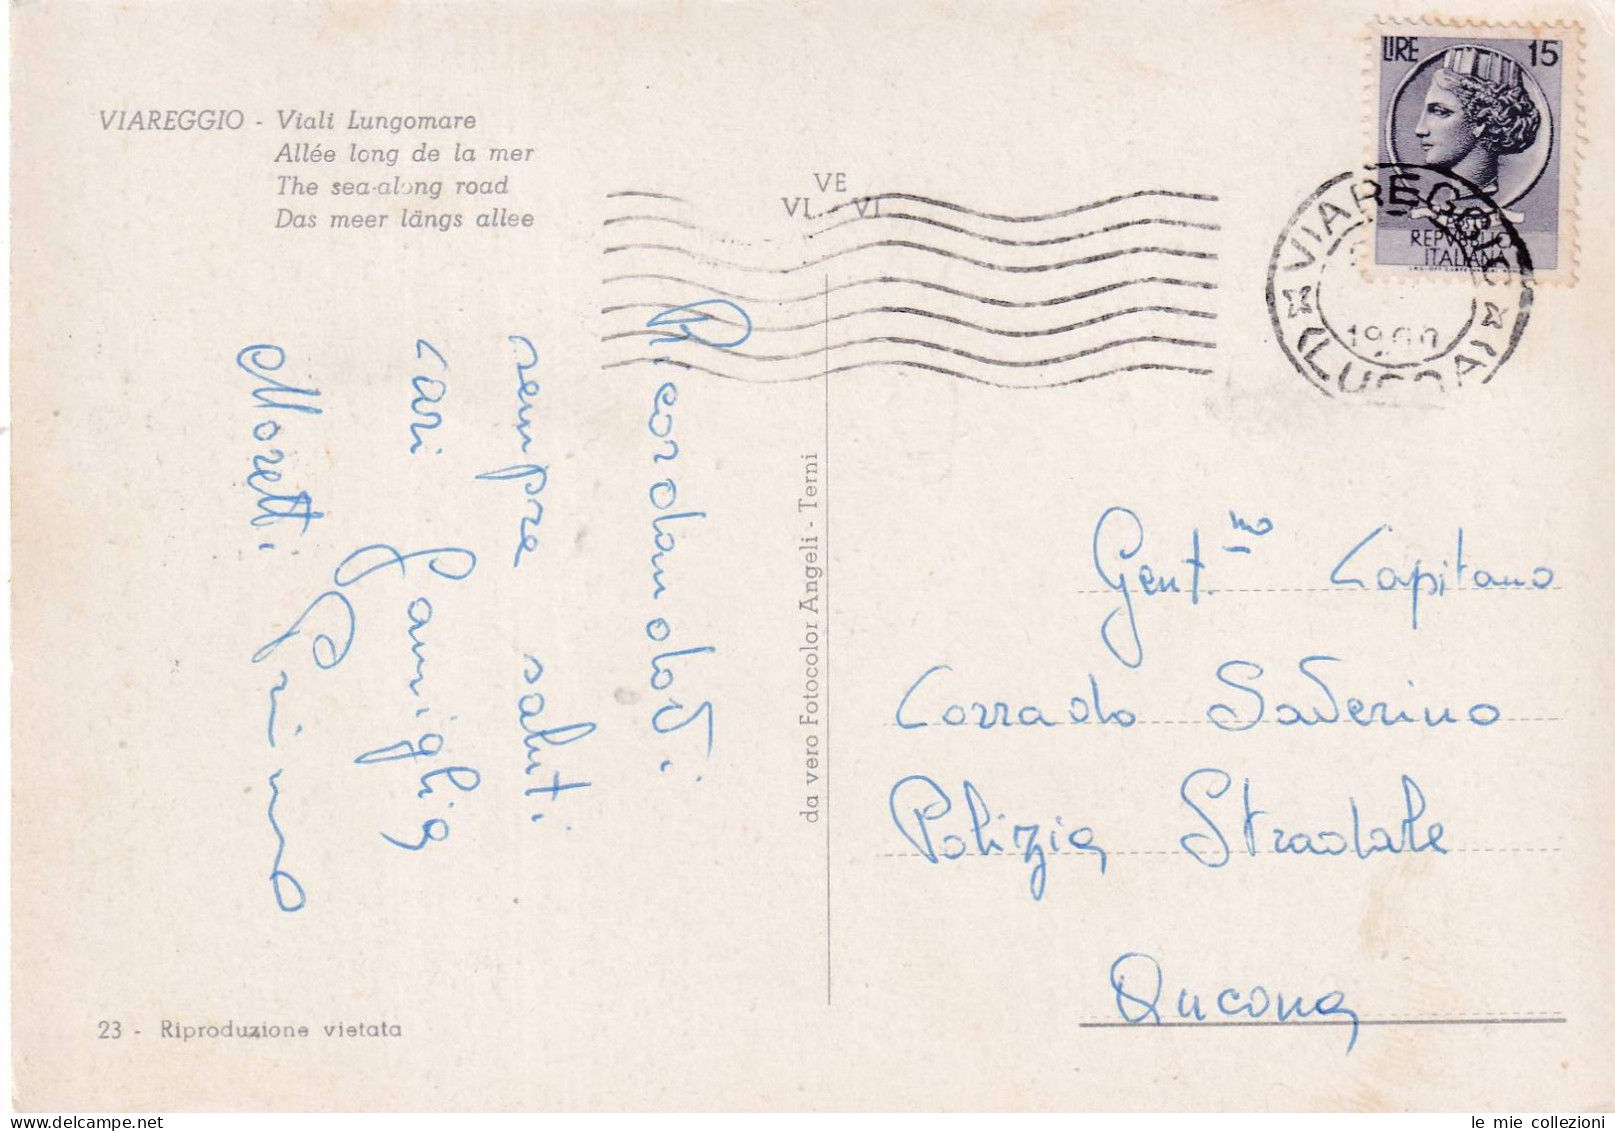 VIAREGGIO - Viali Lungomare
Allée long de la mer
The sea-along road
Das meer längs allee
VE
VI - VI
LIRE 15
POSTE
REPVBBLICA
ITALIANA
VIAREGGIO
(LUCCA)
Ricordandovi
sempre saluti
cari Famiglia
Moretti Primo
da vero Fotocolor Angeli - Terni
Gent.mo Capitano
Corrado Saverino
Polizia Stradale
Ancona
23 - Riproduzione vietata
le mie collezioni